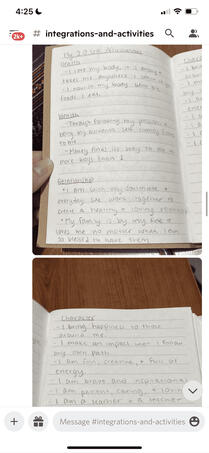 4:25
2k+
# integrations-and-activities
My 2.0 Self
Health
- I love my body, it is strong &
takes me anywhere I want
- I nourish my body with
foods I eat.
Wealth
- Through following my passion &
being my authentic self, money flows
to me.
- Money finds its way to me in
more ways than 1
Relationship
- I am with my soulmate &
everyday we work together to
create a healthy & loving
- My family is by my side &
loves me no matter what. I am
so blessed to have them
Character
- I bring happiness to those
around me.
- I make an impact when I follow
my own path.
- I am fun, creative, & full of
energy.
- I am brave and inspirational
- I am patient, caring, & loving
- I am a learner & a teacher
Message #integrations-and-activities